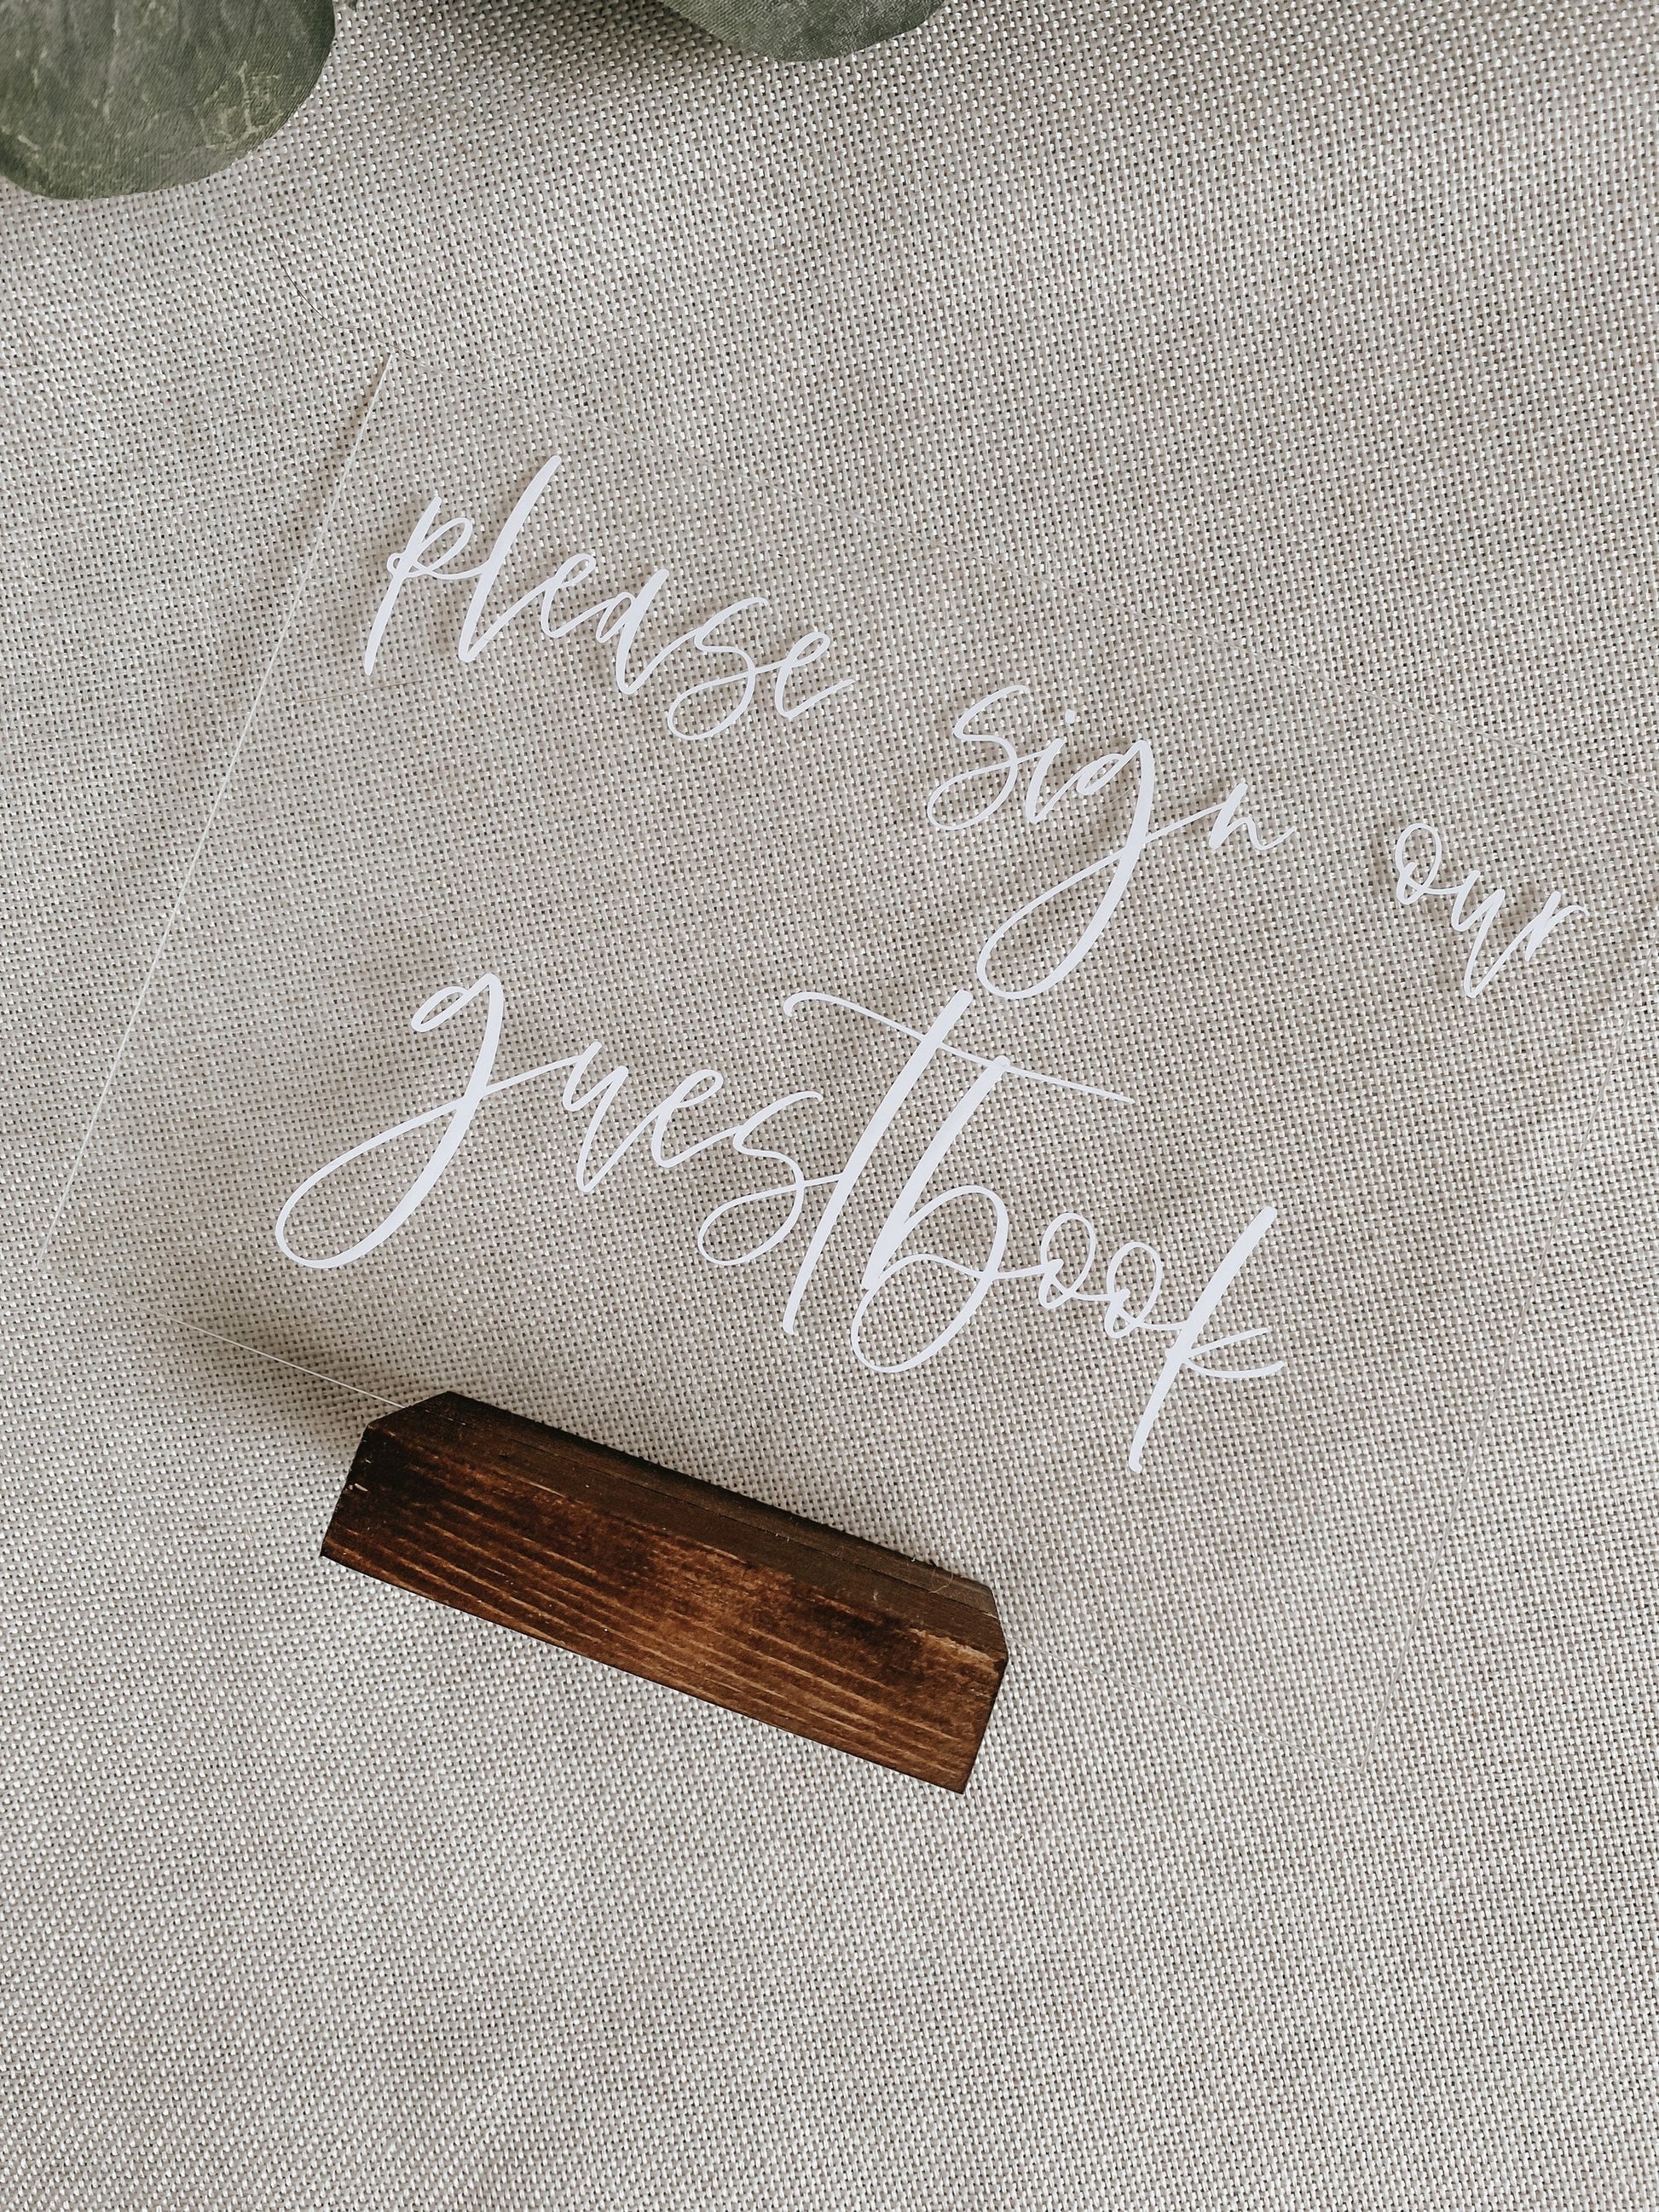 please sign our
guestbook